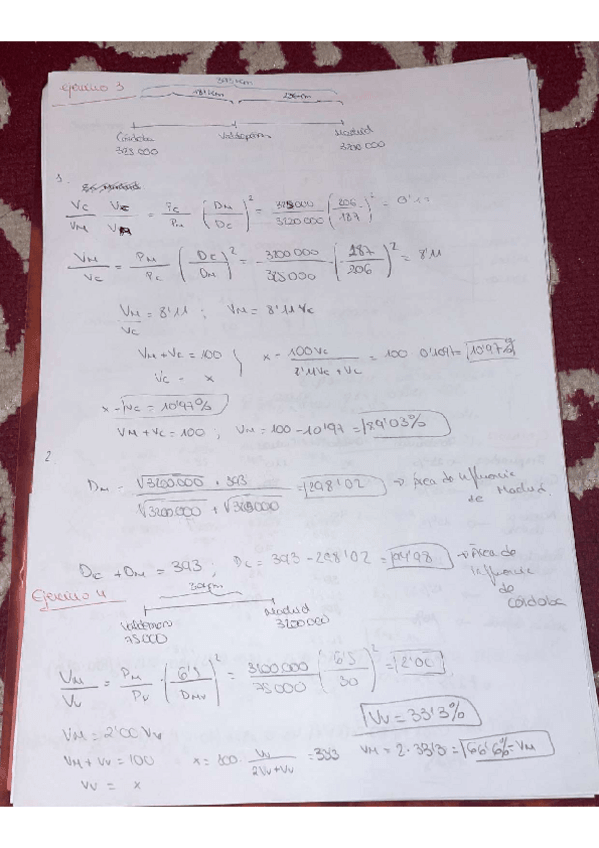 Ejercicio 3
393 km
187 km 206 km
Córdoba Valdepeñas Madrid
325 000 3200 000
1.
Vc/VM Vc/VM = Pc/PM (DM/Dc)² = 325000/3220000 (206/187)² = 0'1
VM/Vc = PM/Pc · (Dc/DM)² = 3200 000/325 000 · (187/206)² = 8'11
VM/Vc = 8'11 ; VM = 8'11 Vc
VM + Vc = 100 } x = 100 Vc/8'11Vc + Vc = 100 0'1097= 10'97%
Vc = x
x = Vc = 10'97%
VM + Vc = 100 ; VM = 100 - 10'97 = 89'03%
2
DM = √3200000 · 393/√3200000 + √325000 = 298'02 → Área de influencia
de Madrid
Dc + DM = 393 ; Dc = 393 - 298'02 = 94'98 → Área de
influencia
de
Córdoba
Ejercicio 4
Valdemoro Madrid
75 000 3200 000
VM/Vv = PM/Pv · (6'5/DMV)² = 3200 000/75 000 (6'5/30)² = 2'00
Vv = 33'3%
VM = 2'00 Vv
VM + Vv = 100 x = 100 · Vv/2Vv + Vv = 333 VM = 2 · 33'3 = 66'6% = VM
Vv = x